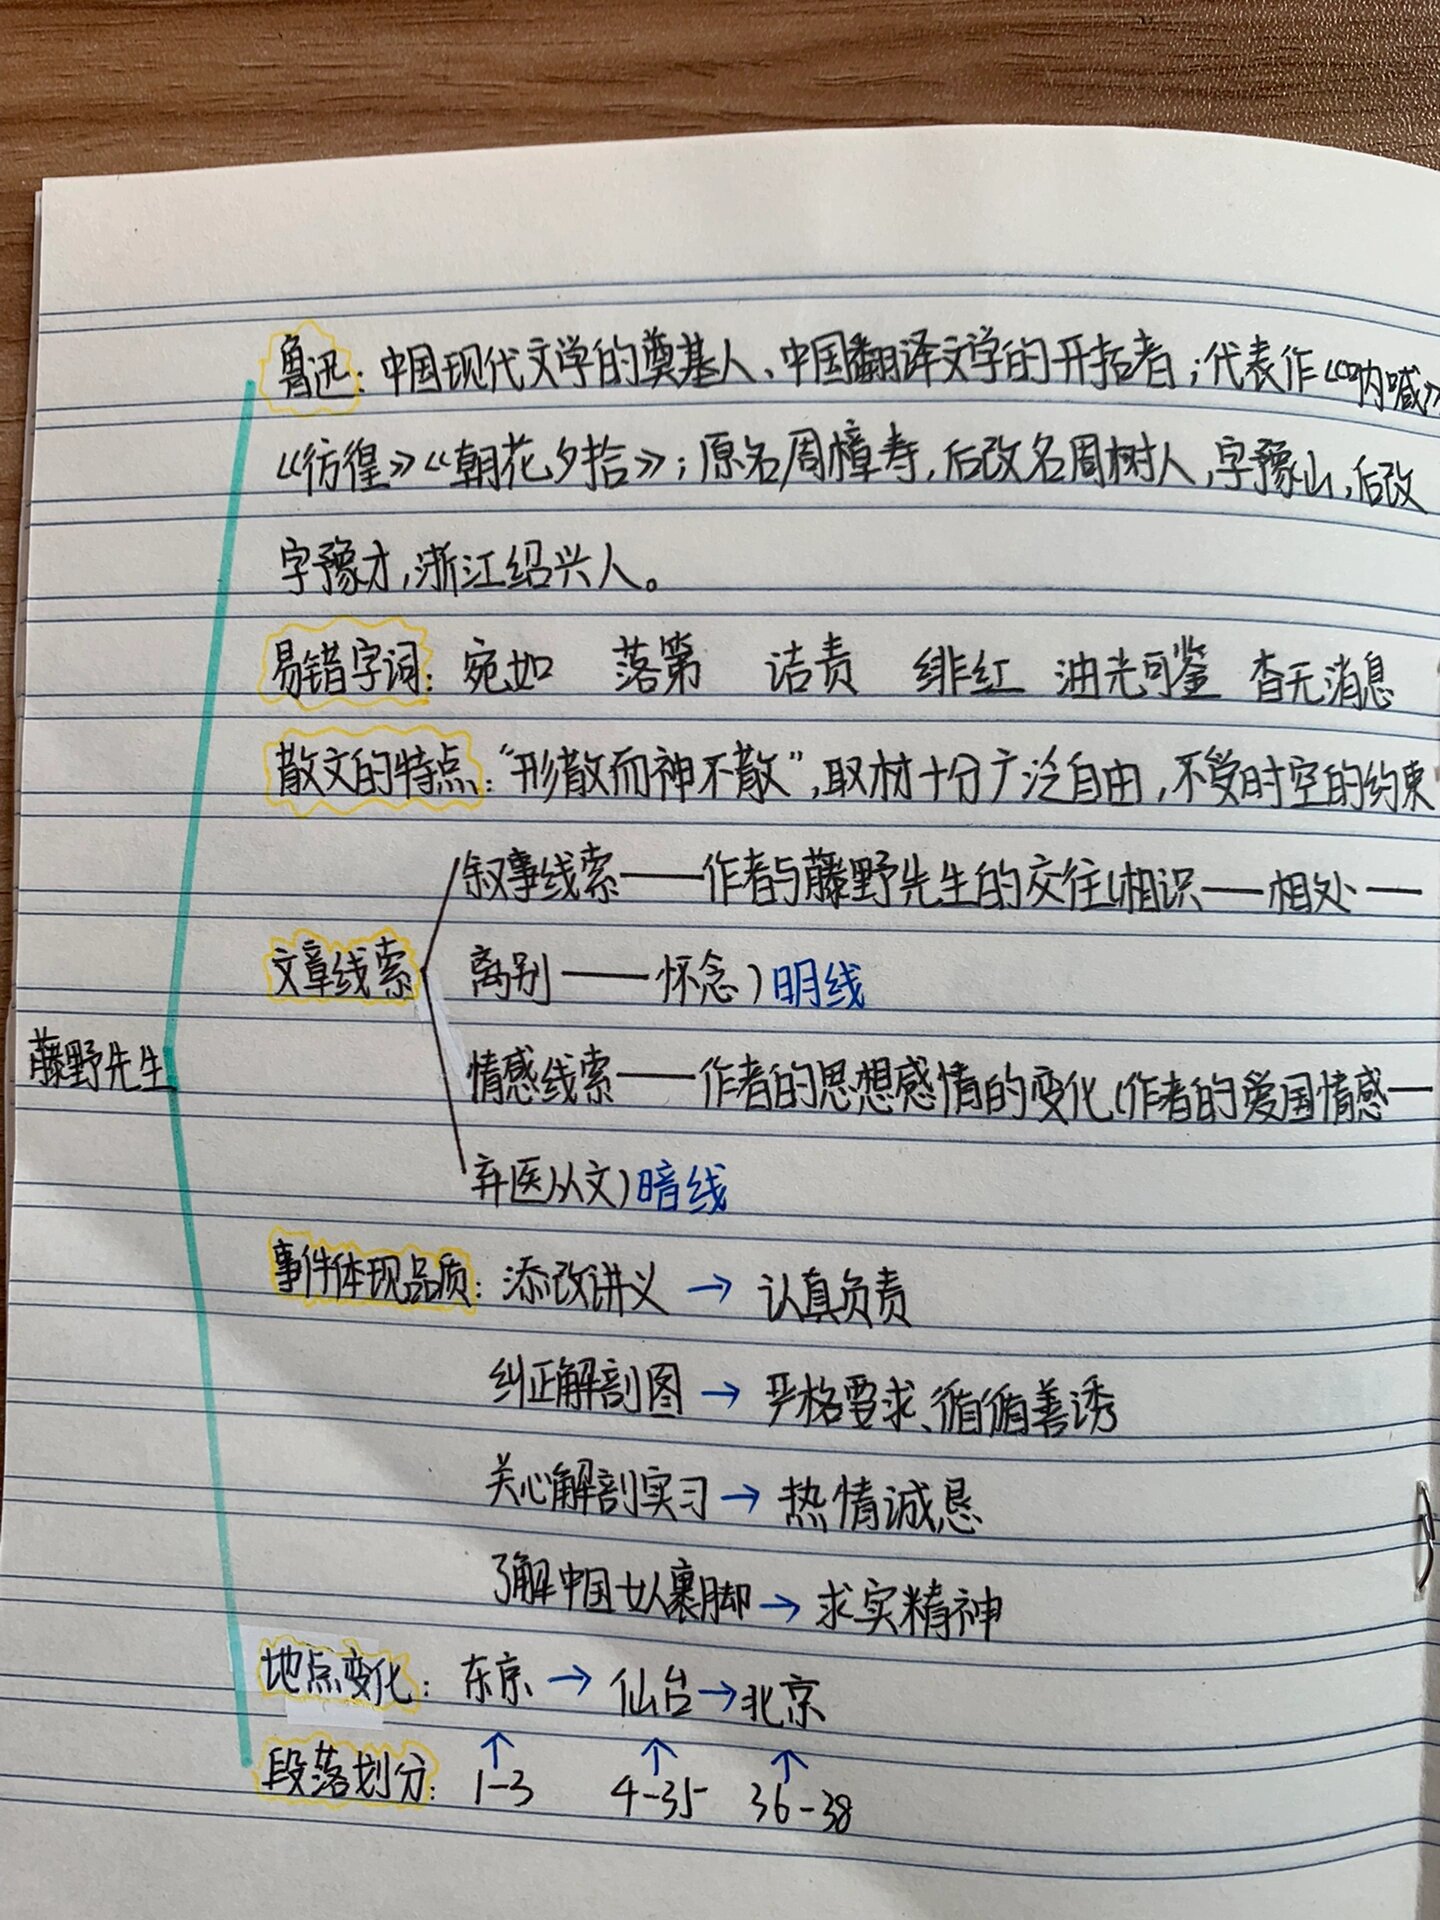 鲁迅：中国现代文学的奠基人、中国翻译文学的开拓者；代表作《呐喊》
《彷徨》《朝花夕拾》；原名周樟寿，后改名周树人，字豫山，后改
字豫才，浙江绍兴人。
易错字词：宛如 落第 诘责 绯红 油光可鉴 杳无消息
散文的特点：“形散而神不散”，取材十分广泛自由，不受时空的约束
叙事线索——作者与藤野先生的交往（相识——相处—
文章线索 离别——怀念）明线
藤野先生
情感线索——作者的思想感情的变化（作者的爱国情感—
弃医从文）暗线
事件体现品质：添改讲义→认真负责
纠正解剖图→严格要求、循循善诱
关心解剖实习→热情诚恳
了解中国女人裹脚→求实精神
地点变化：东京→仙台→北京
段落划分：1-3 4-35 36-38